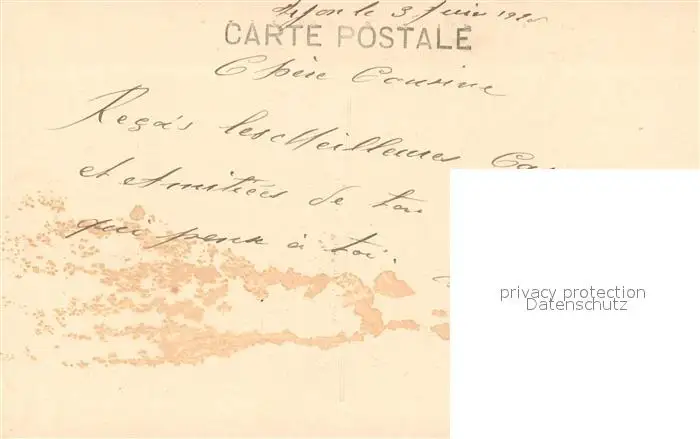 le 3 Juin
CARTE POSTALE
Chère Cousine
Reçois les Meilleures
et Amitiées de
qui pense à toi.
privacy protection
Datenschutz